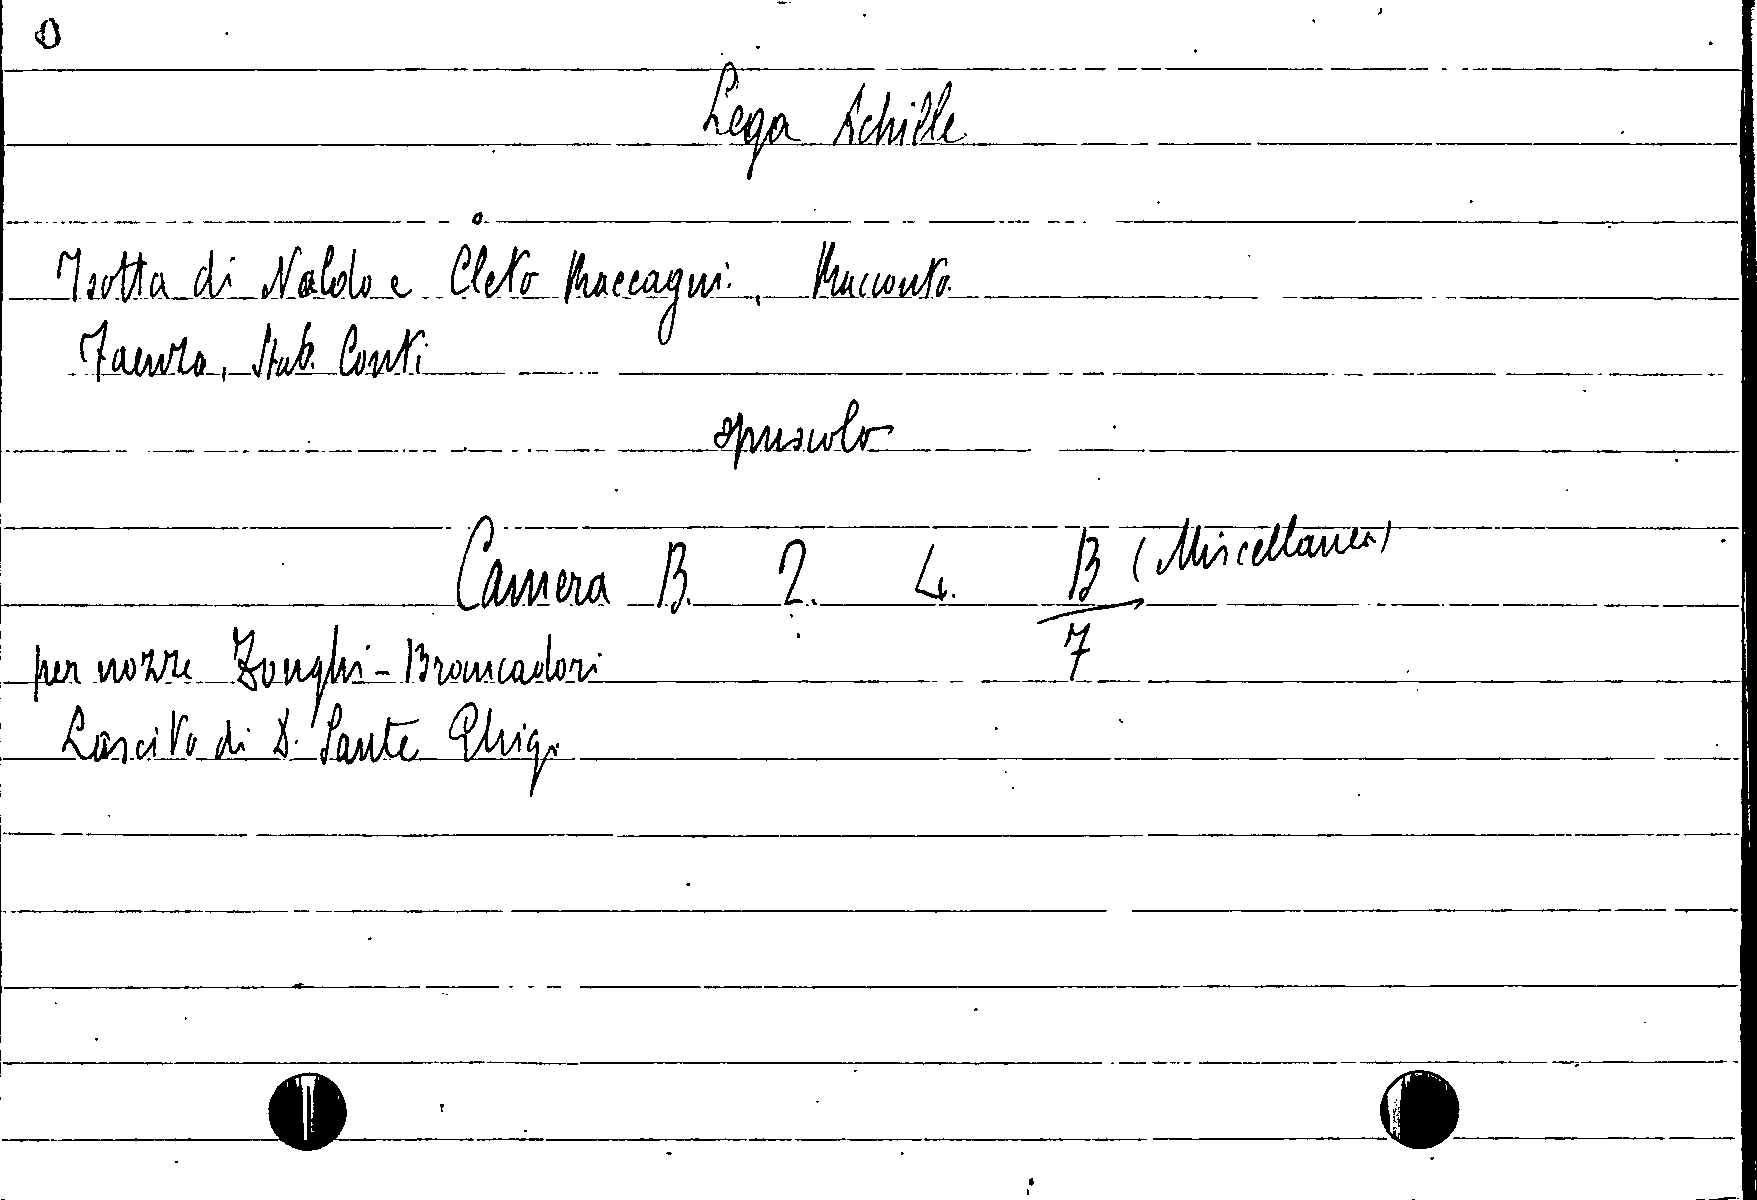 Lega Achille
Isotta di Naldo e Cleto Maccagni. Racconto
Faenza, Stab. Conti
opuscolo
Camera B. 2. 4. B (Miscellanea)
7
per nozze Zonghi-Brancadori
Lascito di D. Sante Ghigi